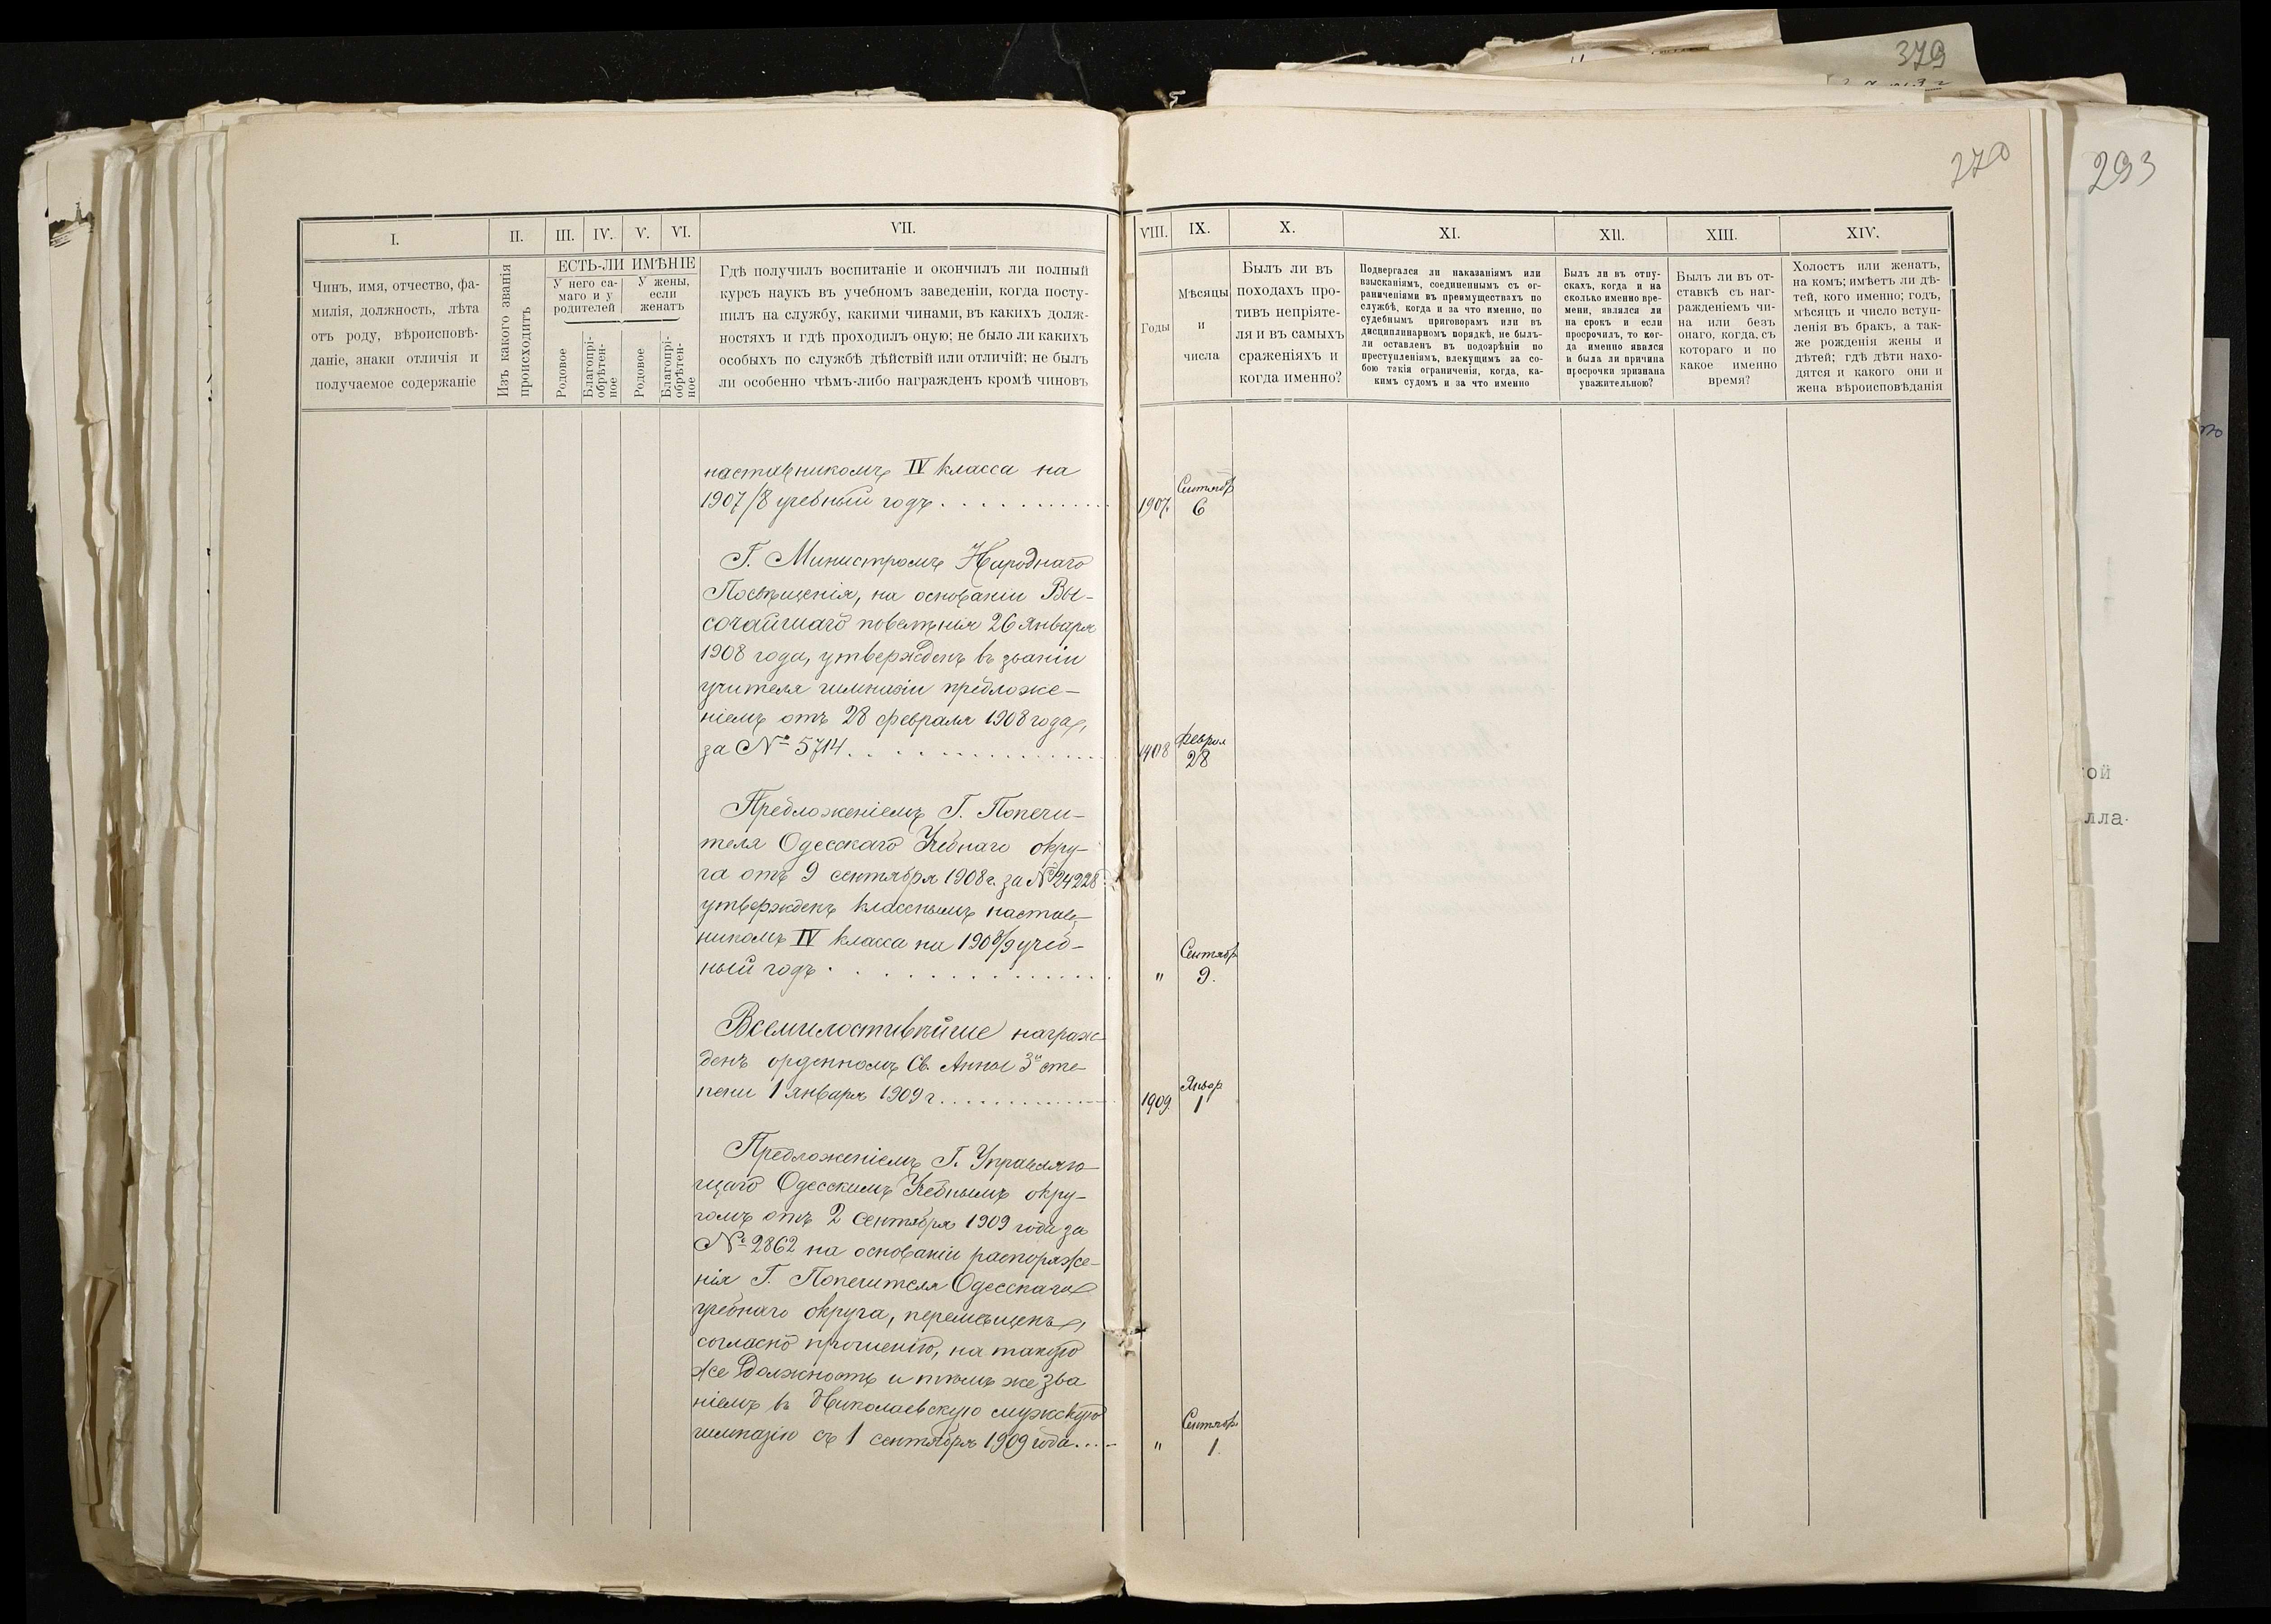 379
270
293
I.
II.
III.
IV.
V.
VI.
VII.
VIII.
IX.
X.
XI.
XII.
XIII.
XIV.
Чинъ, имя, отчество, фа-
милія, должность, лѣта
отъ роду, вѣроисповѣ-
даніе, знаки отличія и
получаемое содержаніе
Изъ какого званія
происходитъ
ЕСТЬ-ЛИ ИМѢНІЕ
У него са-
маго и у
родителей
У жены,
если
женатъ
Родовое
Благопрі-
обрѣтен-
ное
Родовое
Благопрі-
обрѣтен-
ное
Гдѣ получилъ воспитаніе и окончилъ ли полный
курсъ наукъ въ учебномъ заведеніи, когда посту-
пилъ на службу, какими чинами, въ какихъ долж-
ностяхъ и гдѣ проходилъ оную; не было ли какихъ
особыхъ по службѣ дѣйствій или отличій; не былъ
ли особенно чѣмъ-либо награжденъ кромѣ чиновъ
Годы
Мѣсяцы
и
числа
Былъ ли въ
походахъ про-
тивъ непріяте-
ля и въ самыхъ
сраженіяхъ и
когда именно?
Подвергался ли наказаніямъ или
взысканіямъ, соединеннымъ съ ог-
раниченіями въ преимуществахъ по
службѣ, когда и за что именно, по
судебнымъ приговорамъ или въ
дисциплинарномъ порядкѣ, не былъ-
ли оставленъ въ подозрѣніи по
преступленіямъ, влекущимъ за со-
бою такія ограниченія, когда, ка-
кимъ судомъ и за что именно
Былъ ли въ отпу-
скахъ, когда и на
сколько именно вре-
мени, являлся ли
на срокъ и если
просрочилъ, то ког-
да именно явился
и была ли причина
просрочки признана
уважительною?
Былъ ли въ от-
ставкѣ съ наг-
ражденіемъ чи-
на или безъ
онаго, когда, съ
котораго и по
какое именно
время?
Холостъ или женатъ,
на комъ; имѣетъ ли дѣ-
тей, кого именно; годъ,
мѣсяцъ и число вступ-
ленія въ бракъ, а так-
же рожденія жены и
дѣтей; гдѣ дѣти нахо-
дятся и какого они и
жена вѣроисповѣданія
наставникомъ IV класса на
1907/8 учебный годъ . . . . . . . . . . . 1907. Сентябр 6
Г. Министромъ Народнаго
Посвѣщенія, на основаніи Вы-
сочайшаго повелѣнія 26 января
1908 года, утвержденъ въ званіи
учителя гимназіи предложе-
ніемъ отъ 28 февраля 1908 года,
за № 5714 . . . . . . . . . . . . 1908 Феврал 28
Предложеніемъ Г. Попечи-
теля Одесскаго Учебнаго окру-
га отъ 9 сентября 1908 г. за № 24228
утвержденъ класснымъ настав-
никомъ IV класса на 1908/9 учеб-
ный годъ . . . . . . . . . . . . . " Сентябр 9.
Всемилостивѣйше награж-
денъ орденномъ Св. Анны 3й сте-
пени 1 января 1909 г. . . . . . . . . . . 1909 Январ 1
Предложеніемъ Г. Управляю-
щаго Одесскимъ Учебнымъ окру-
гомъ отъ 2 сентября 1909 года за
№ 2862 на основаніи распоряже-
нія Г. Попечителя Одесскаго
учебнаго округа, перемѣщенъ,
согласно прошенію, на такую
же должность и тѣмъ же зва
ніемъ въ Николаевскую мужскую
гимназію съ 1 сентября 1909 года. . . . " Сентябр 1.
ой
лла-